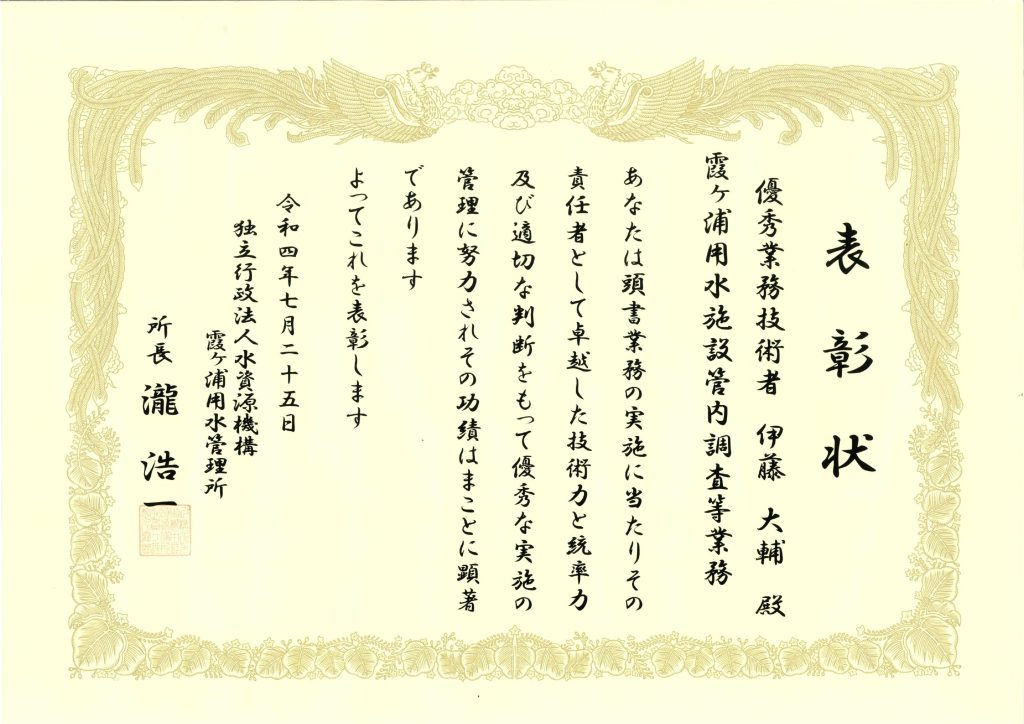 表彰状
優秀業務技術者 伊藤 大輔 殿
霞ヶ浦用水施設管内調査等業務
あなたは頭書業務の実施に当たりその
責任者として卓越した技術力と統率力
及び適切な判断をもって優秀な実施の
管理に努力されその功績はまことに顕著
であります
よってこれを表彰します
令和四年七月二十五日
独立行政法人水資源機構
霞ヶ浦用水管理所
所長 瀧 浩一